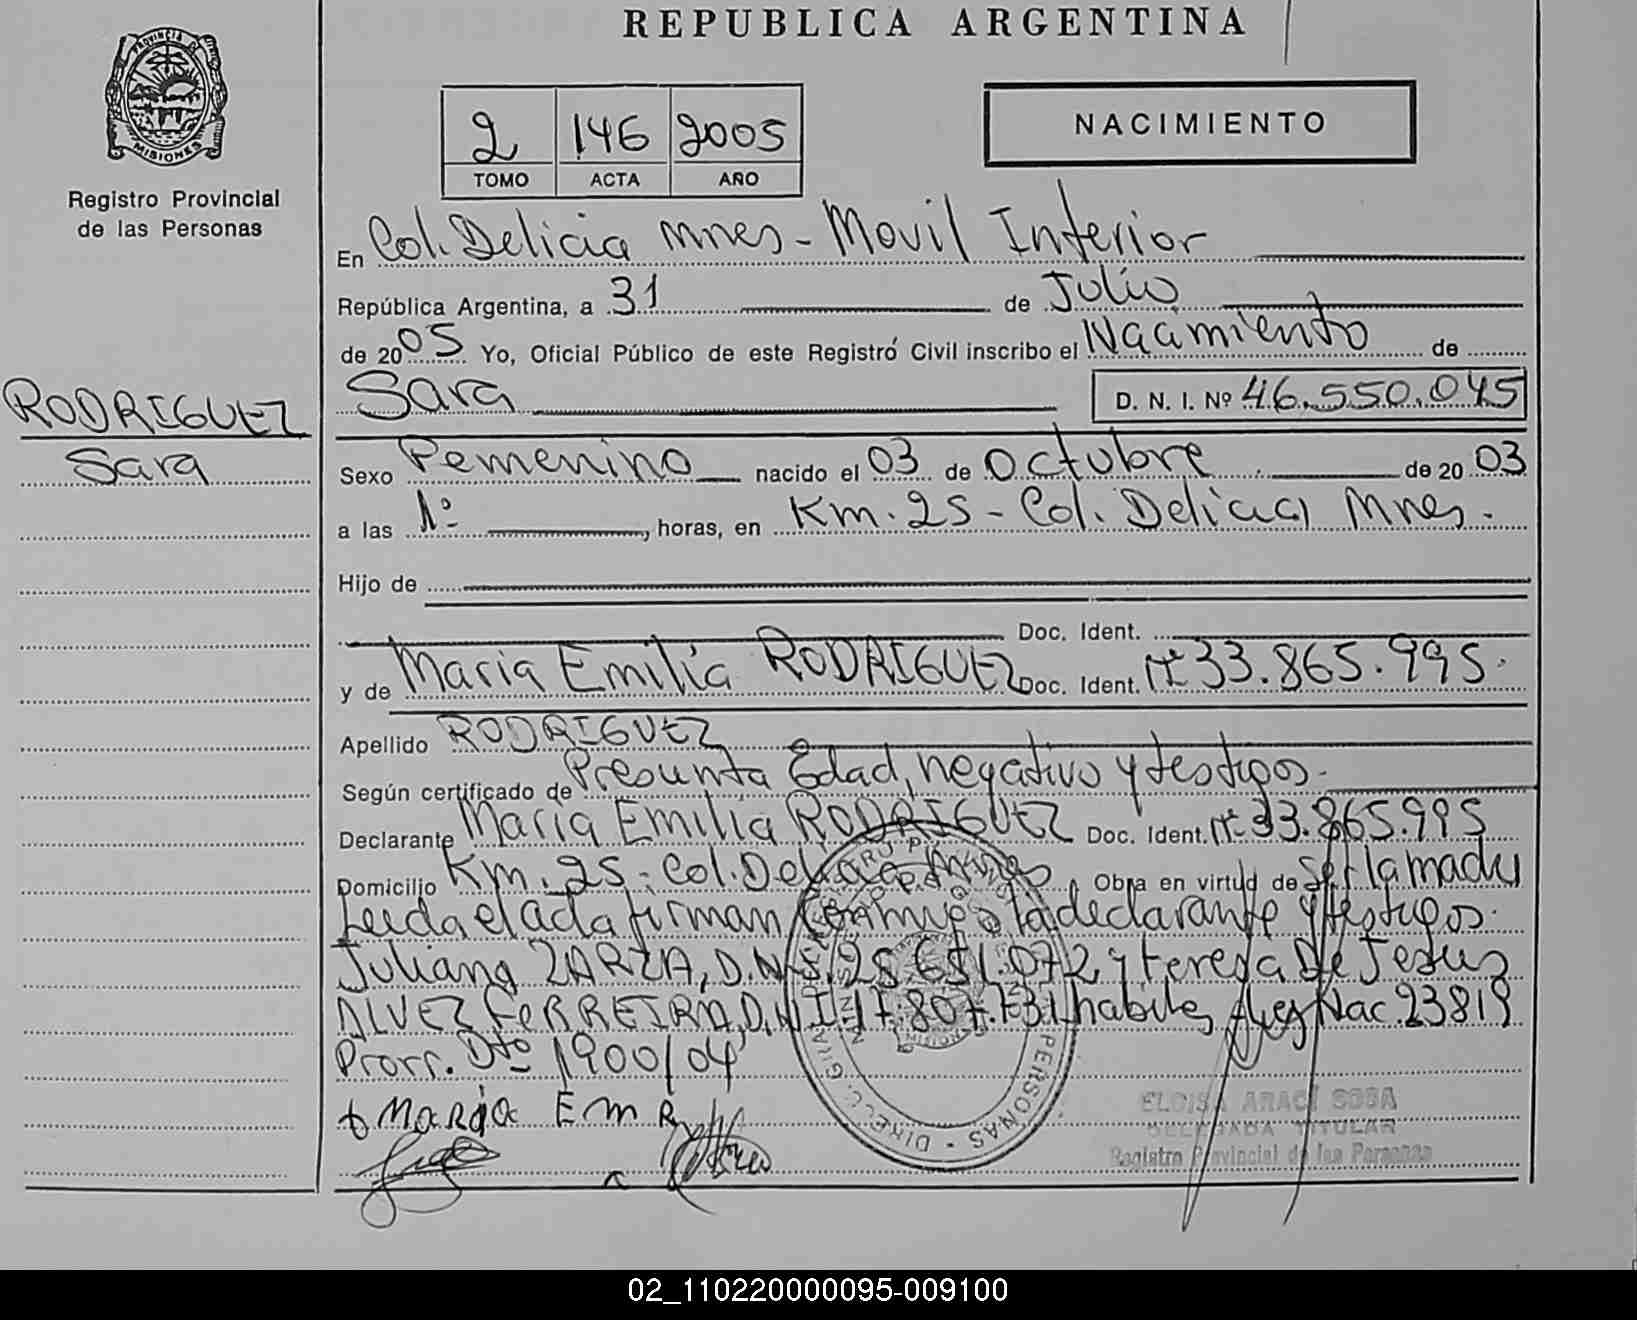 REPUBLICA ARGENTINA
PROVINCIA DE
MISIONES
Registro Provincial
de las Personas
2 146 2005
TOMO ACTA AÑO
NACIMIENTO
En Col. Delicia Mnes - Movil Interior
República Argentina, a 31 de Julio
de 2005 Yo, Oficial Público de este Registro Civil inscribo el Nacimiento de
Sara D. N. I. Nº 46.550.045
RODRIGUEZ
Sara
Sexo Femenino nacido el 03 de Octubre de 2003
a las 1º horas, en Km. 25 - Col. Delicia, Mnes.
Hijo de
Doc. Ident.
y de Maria Emilia RODRIGUEZ Doc. Ident. 33.865.995.
Apellido RODRIGUEZ
Según certificado de Presunta Edad, negativo y testigos.
Declarante Maria Emilia RODRIGUEZ Doc. Ident. 33.865.995
Domicilio Km. 25 - Col. Delicia Mnes, Obra en virtud de ser la madre
Leida el acta firman conmigo la declarante y testigos.
Juliana ZARZA, D.N.I. 25.651.072 y Teresa De Jesus
ALVEZ FERREIRA, D.N.I. 17.807.731 habiles, Ley Nac. 23819
Prorr. Dto 1900/04
Maria Em R
ELOISA ARACI SOSA
DELEGADA TITULAR
Registro Provincial de las Personas
02_110220000095-009100